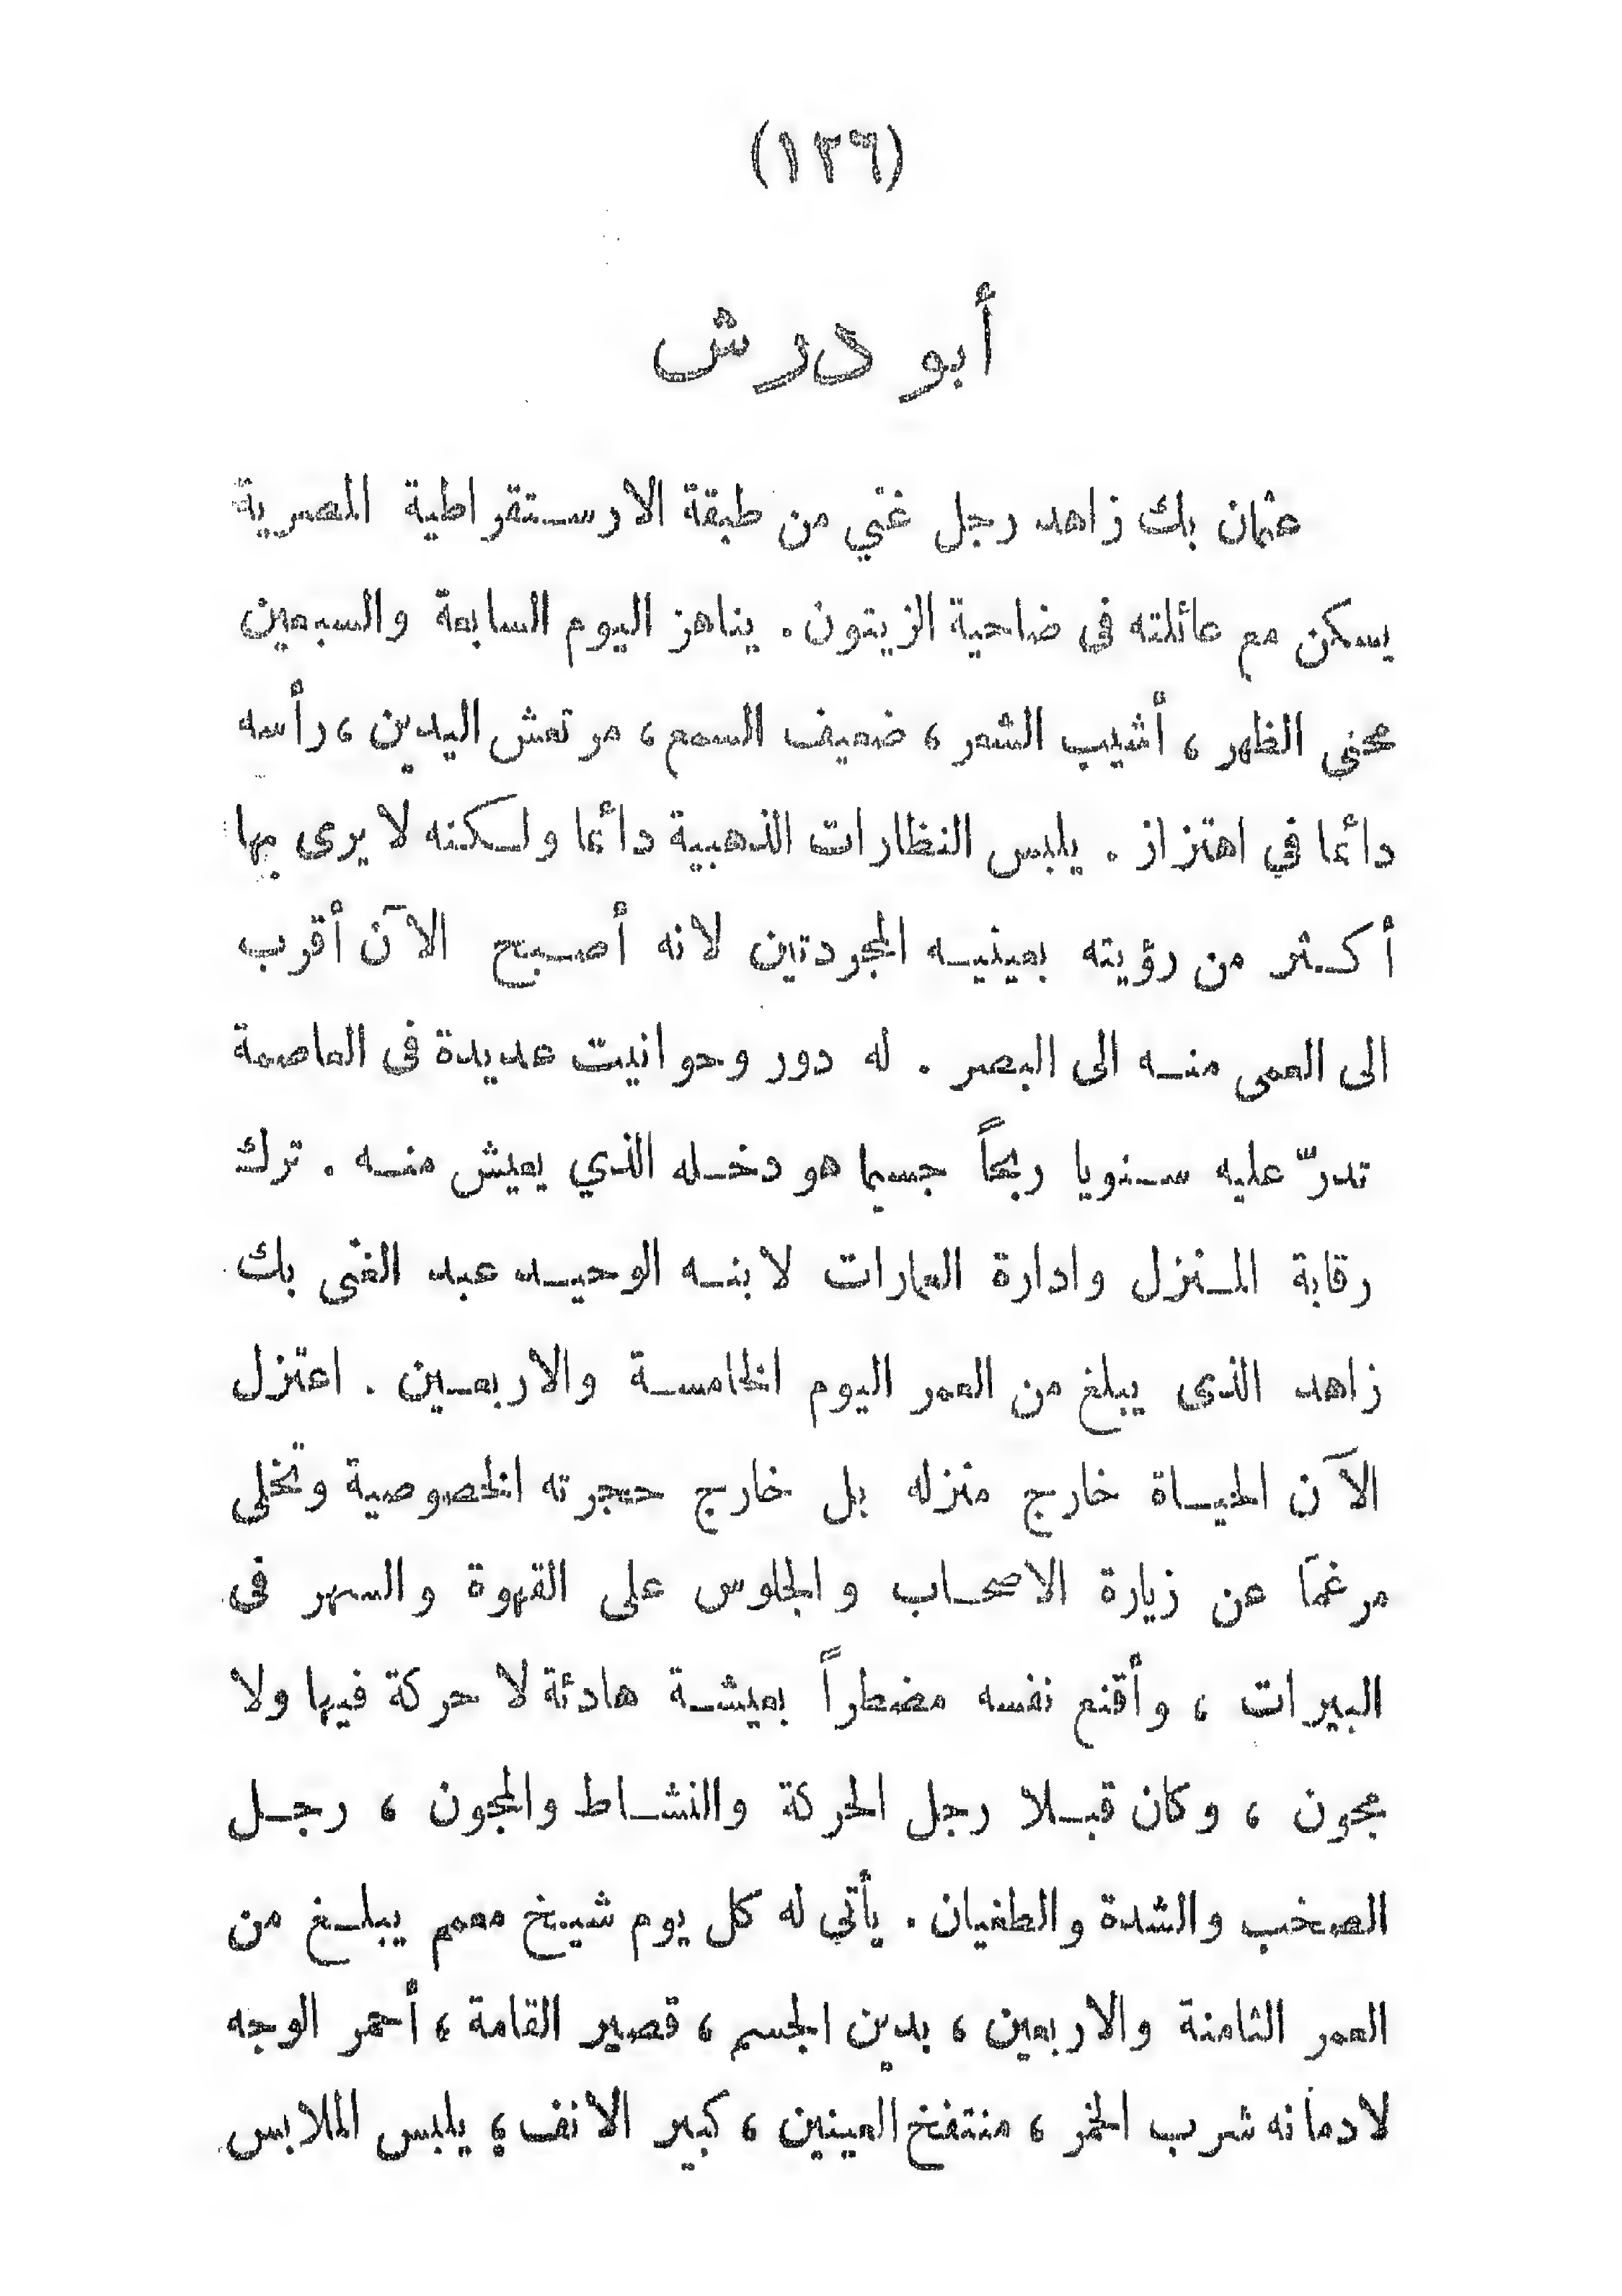 (١٣٦)
أبو درش
عثمان بك زاهد رجل غني من طبقة الارستقراطية المصرية
يسكن مع عائلته فى ضاحية الزيتون . يناهز اليوم السابعة والسبعين
محنى الظهر ، أشيب الشعر ، ضعيف السمع ، مرتعش اليدين ، رأسه
دائما في اهتزاز . يلبس النظارات الذهبية دائما ولكنه لا يرى بها
أكثر من رؤيته بعينيه المجردتين لانه أصبح الآن أقرب
الى العمى منه الى البصر . له دور وحوانيت عديدة فى العاصمة
تدرّ عليه سنويا ربحاً جسيما هو دخله الذي يعيش منه . ترك
رقابة المنزل وادارة العمارات لابنه الوحيد عبد الغنى بك
زاهد الذى يبلغ من العمر اليوم الخامسة والاربعين . اعتزل
الآن الحياة خارج منزله بل خارج حجرته الخصوصية وتخلى
مرغما عن زيارة الاصحاب والجلوس على القهوة والسهر فى
البيرات ، وأقنع نفسه مضطراً بعيشة هادئة لا حركة فيها ولا
مجون ، وكان قبلا رجل الحركة والنشاط والمجون ، رجل
الصخب والشدة والطغيان . يأتي له كل يوم شيخ معمم يبلغ من
العمر الثامنة والاربعين ، بدين الجسم ، قصير القامة ، أحمر الوجه
لادمانه شرب الخمر ، منتفخ العينين ، كبير الانف ، يلبس الملابس